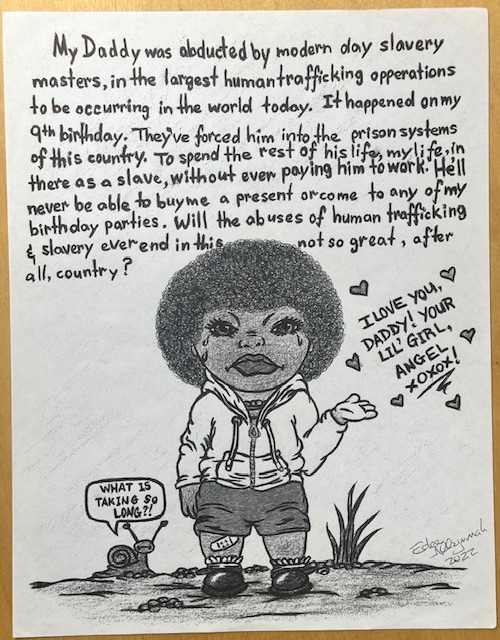 My Daddy was abducted by modern day slavery
masters, in the largest human trafficking opperations
to be occurring in the world today. It happened on my
9th birthday. They've forced him into the prison systems
of this country. To spend the rest of his life, my life, in
there as a slave, without ever paying him to work. He'll
never be able to buy me a present or come to any of my
birthday parties. Will the abuses of human trafficking
& slavery ever end in this not so great, after
all, country?
I LOVE YOU,
DADDY! YOUR
LIL' GIRL,
ANGEL
XOXOX!
WHAT IS
TAKING SO
LONG?!
2022